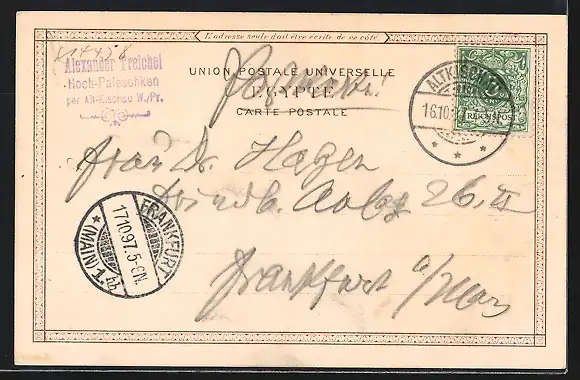 L'adresse seule doit être écrite de ce côté
Alexander Treichel
Hoch-Paleschken
per Alt-Kischau W./Pr.
UNION POSTALE UNIVERSELLE
EGYPTE
CARTE POSTALE
ALTKISCHAU
16.10.
REICHSPOST
Frau Dr. Hagen
26. II
Frankfurt a/Main
FRANKFURT
17.10.97. 5-6N.
* (MAIN) 1. *